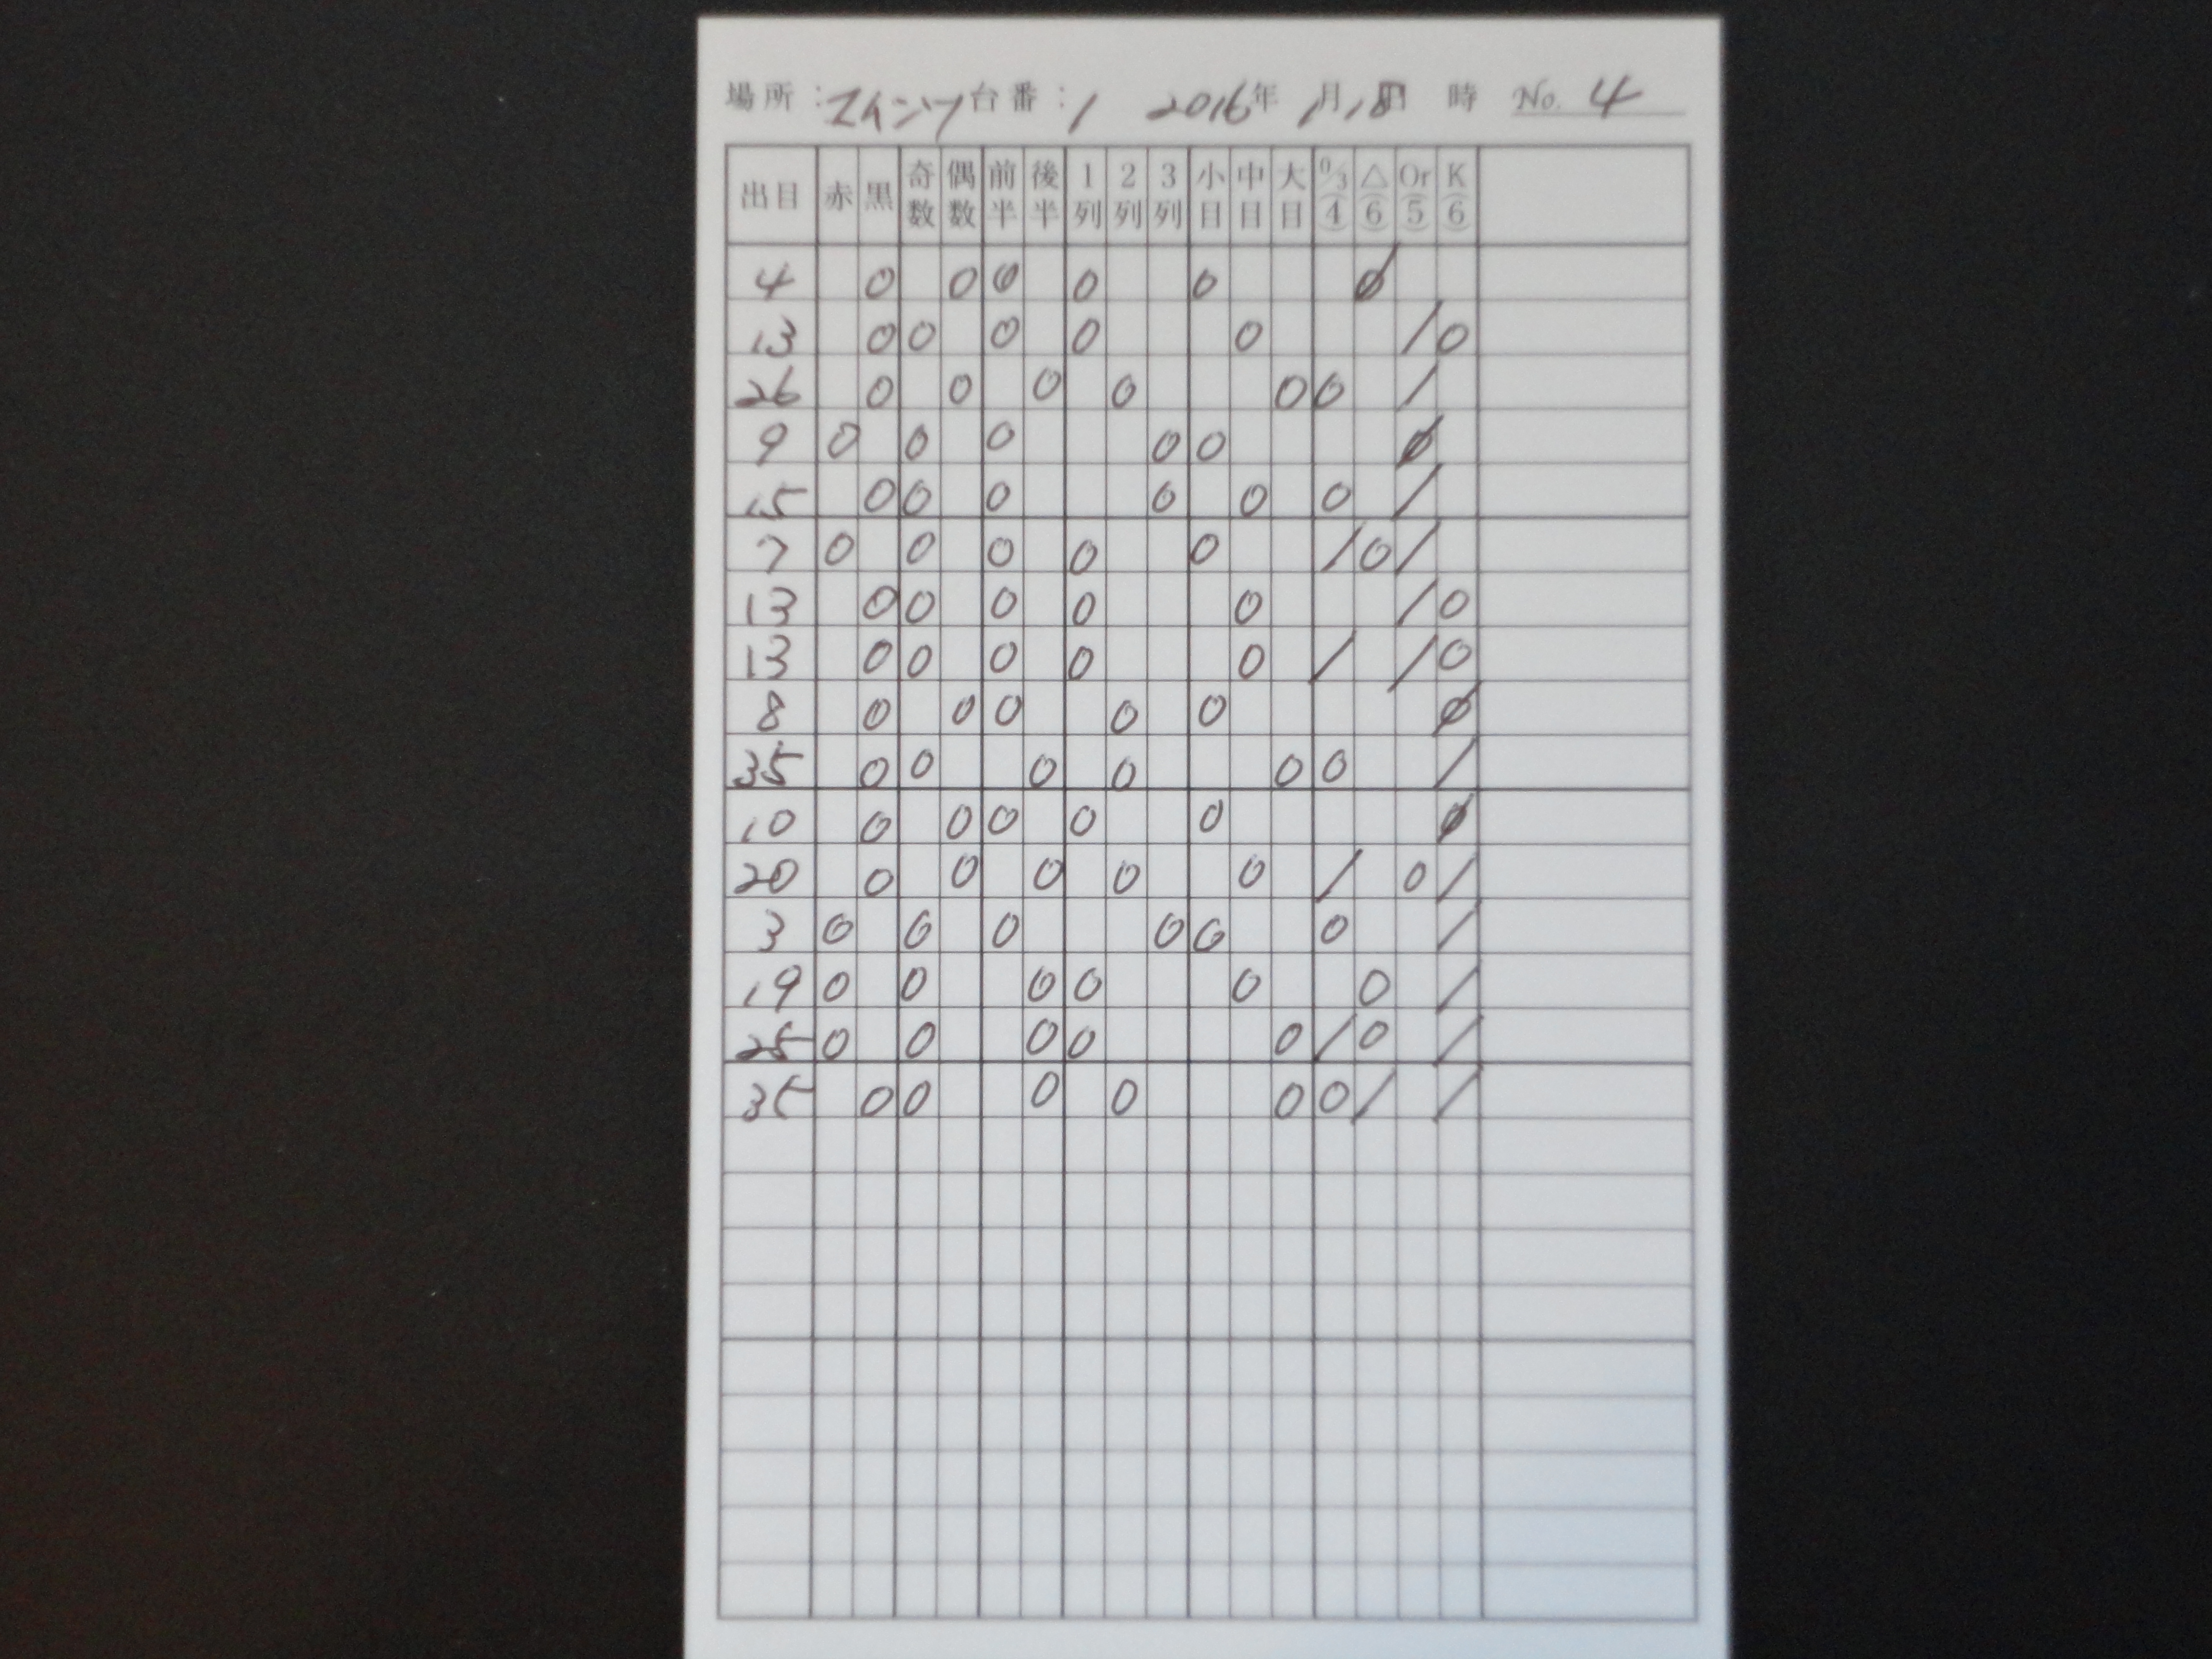 場所：エイシン 台番：1 2016年 1月18日 時 No. 4
出目 赤 黒 奇数 偶数 前半 後半 1列 2列 3列 小目 中目 大目 0/3(4) △(6) Or(5) K(6)
4 0 0 0 0 0 0/
13 0 0 0 0 0 / 0
26 0 0 0 0 0 0 /
9 0 0 0 0 0 0/
15 0 0 0 0 0 0 /
7 0 0 0 0 0 / 0 /
13 0 0 0 0 0 / 0
13 0 0 0 0 0 / / 0
8 0 0 0 0 0 0/
35 0 0 0 0 0 0 /
10 0 0 0 0 0 0/
20 0 0 0 0 0 / 0 /
3 0 0 0 0 0 0 /
19 0 0 0 0 0 0 /
25 0 0 0 0 0 / 0 /
35 0 0 0 0 0 0 / /